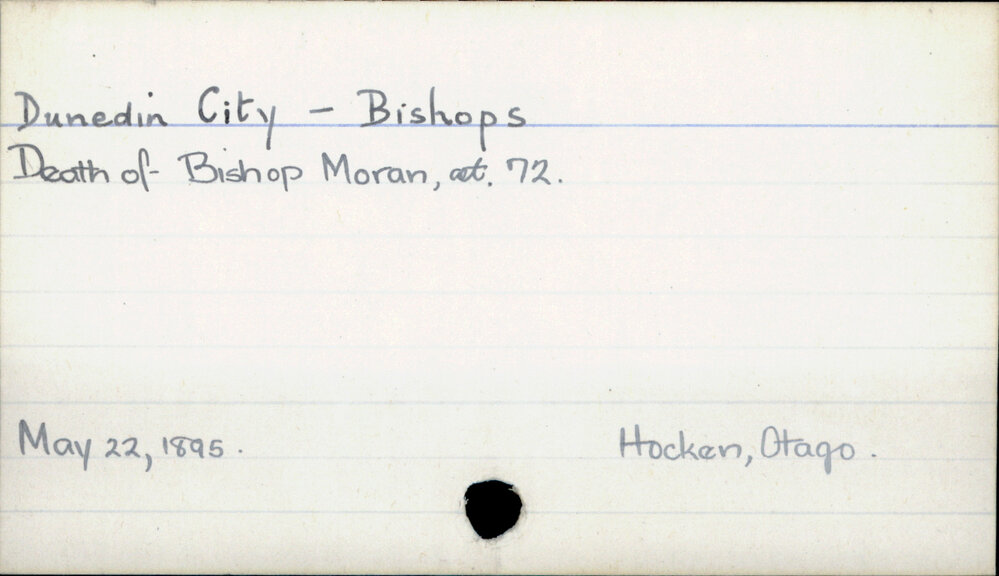 Dunedin City - Bishops
Death of Bishop Moran, æt. 72.
May 22, 1895.
Hocken, Otago.